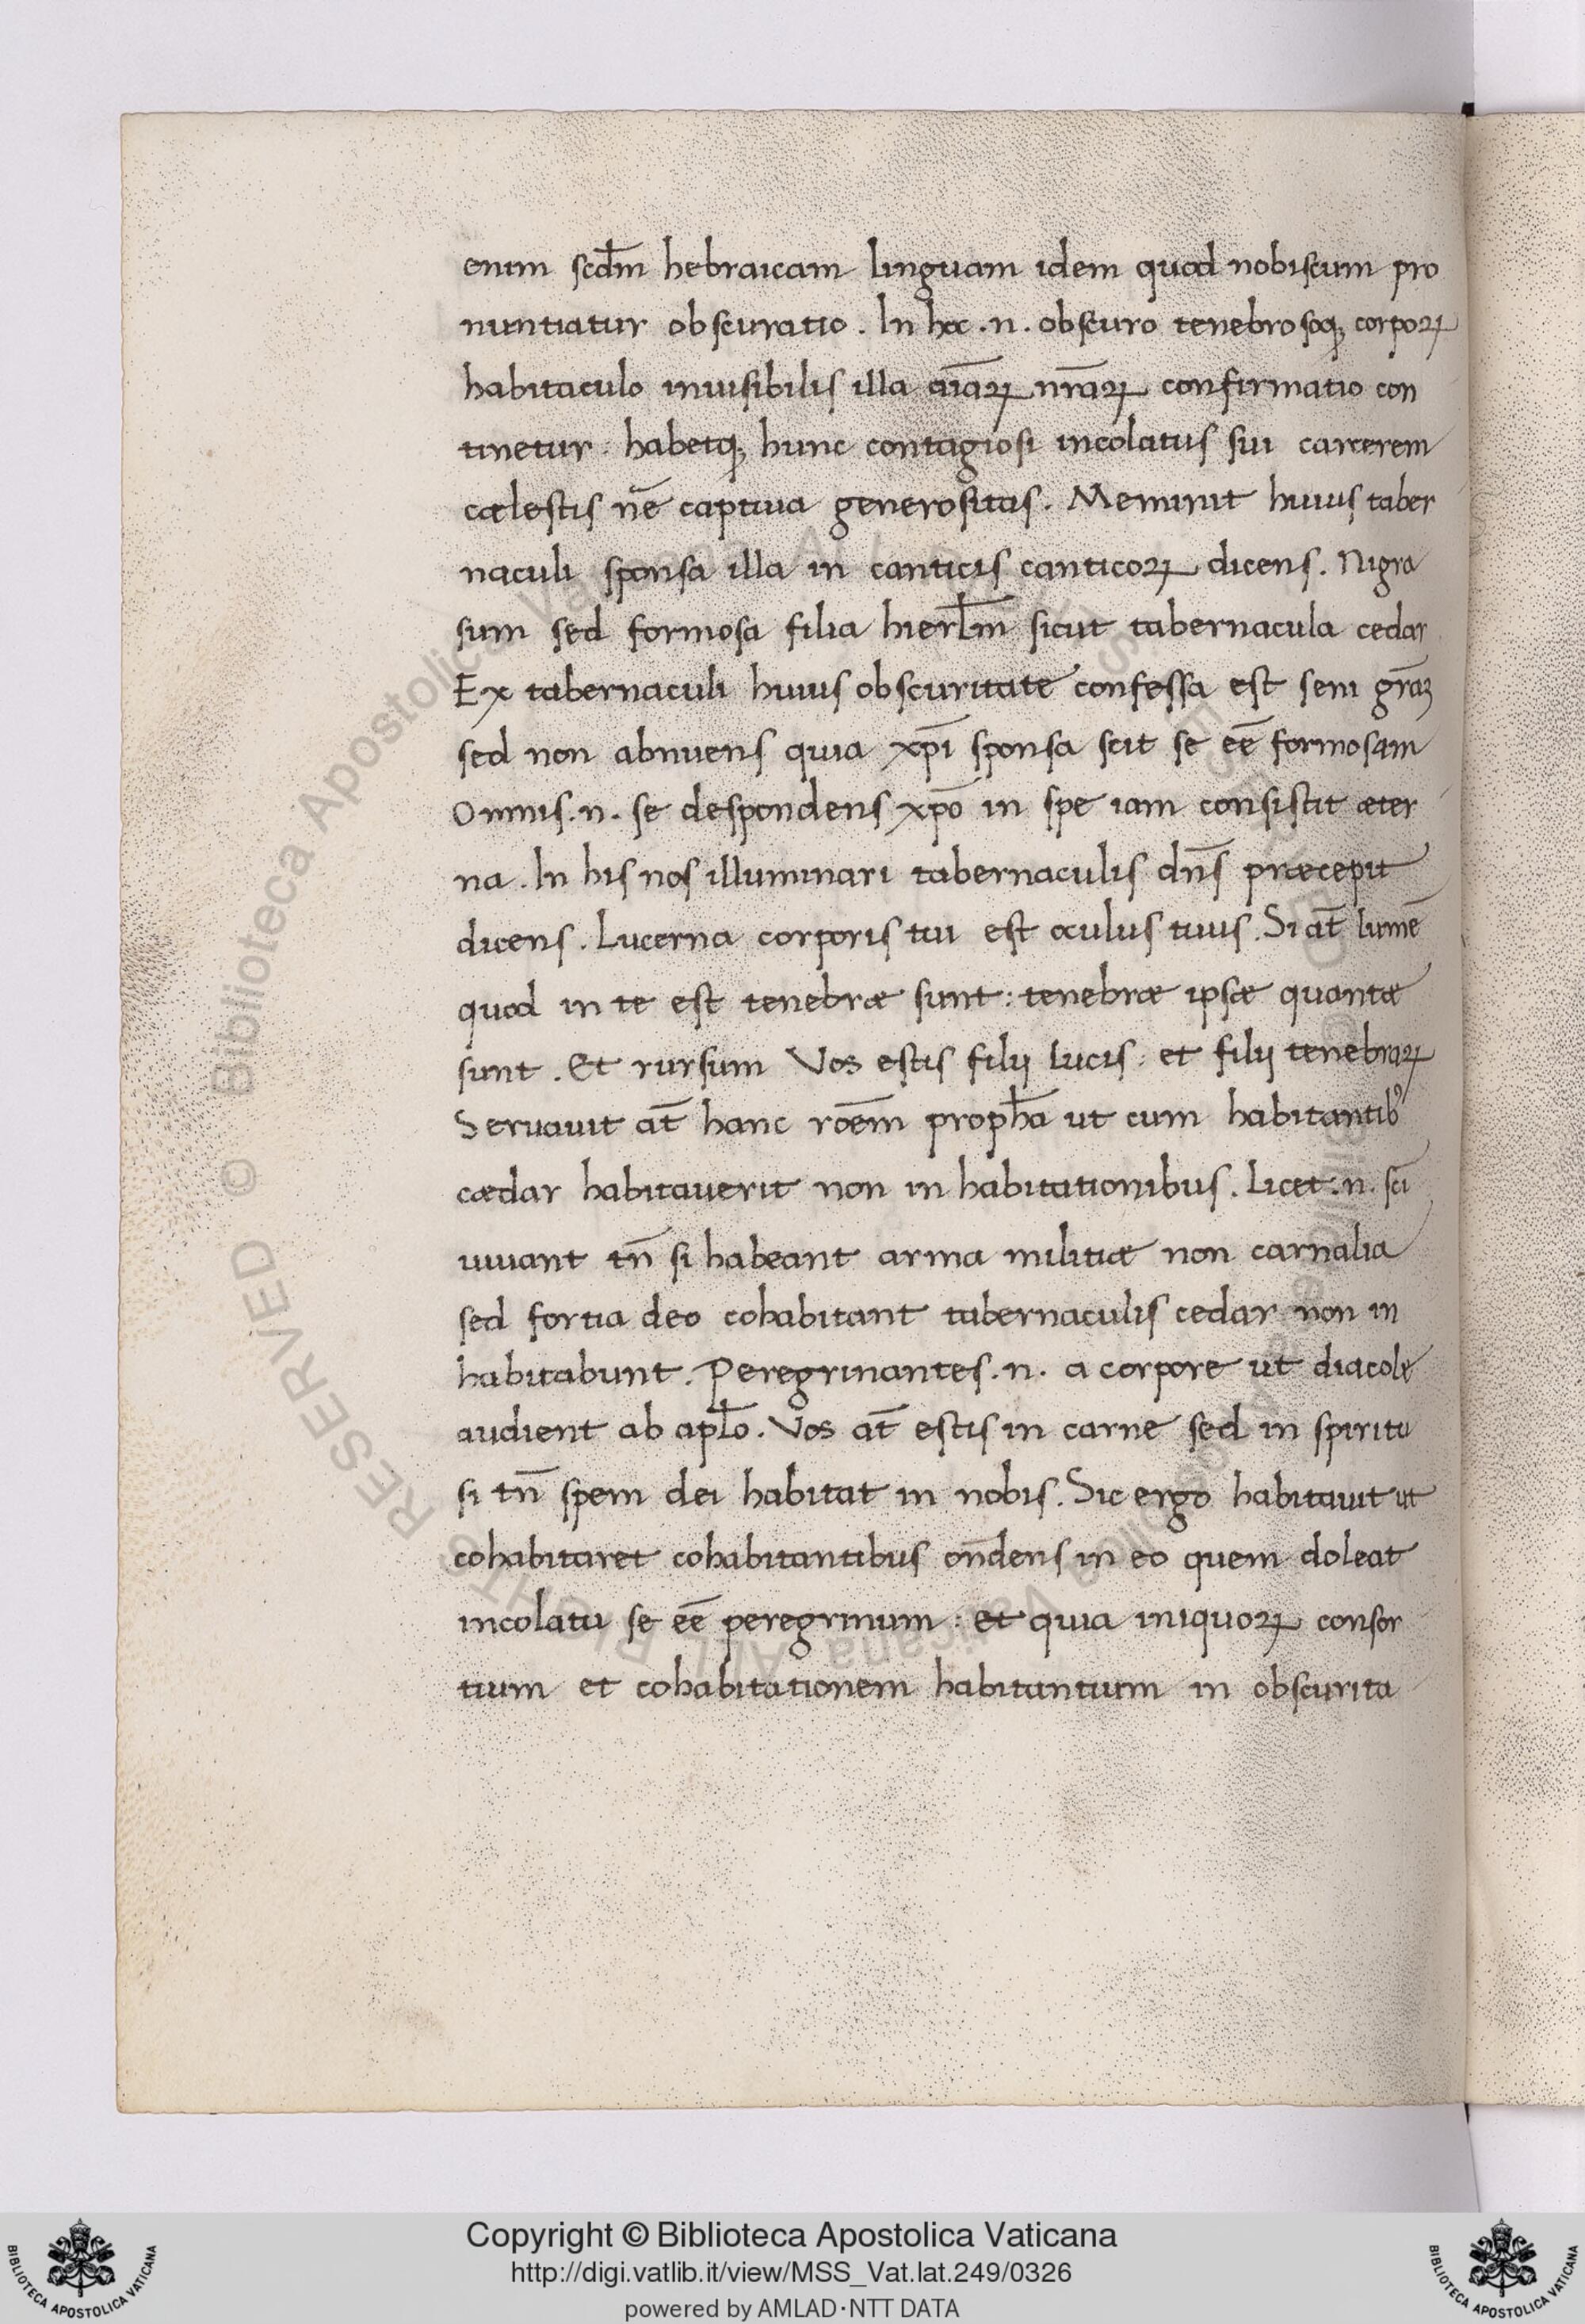 enim scd̄m hebraicam linguam idem quod nobiscum pro
nuntiatur obscuratio. In hoc .n. obscuro tenebrosoq; corpoꝝ
habitaculo inuisibilis illa aīaꝝ nr̄aꝝ confirmatio con
tinetur: habetq; hunc contagiosi incolatus sui carcerem
cælestis captiua generositas. Meminit huius taber
naculi sponsa illa in canticis canticoꝝ dicens. Nigra
sum sed formosa filia hierl̄m sicut tabernacula cedar
Ex tabernaculi huius obscuritate confessa est
sed non abnuens quia xp̄i sponsa scit se eē formosam
Omnis .n. se despondens xp̄o in spe iam consistit æter
na. In his nos illuminari tabernaculis dn̄s præcepit
dicens. Lucerna corporis tui est oculus tuus. Si at̄ lumē
quod in te est tenebræ sunt: tenebræ ipsæ quantæ
sunt. Et rursum Vos estis filij lucis: et filij tenebraꝝ
Seruauit at̄ hanc rōem proph̄a ut cum habitantibꝰ
cædar habitauerit non in habitationibus. Licet .n. sc̄i
uiuant tn̄ si habeant arma militiæ non carnalia
sed fortia deo cohabitant tabernaculis cedar non in
habitabunt. Peregrinantes .n. a corpore ut
audient ab apl̄o. Vos at̄ estis in carne sed in spiritu
si tn̄ spem dei habitat in nobis. Sic ergo habitauit ut
cohabitaret cohabitantibus on̄dens in eo quem doleat
incolatu se eē peregrinum: et quia iniquoꝝ consor
tium et cohabitationem habitantium in obscurita
© Biblioteca Apostolica Vaticana ALL RIGHTS RESERVED
Copyright © Biblioteca Apostolica Vaticana
http://digi.vatlib.it/view/MSS_Vat.lat.249/0326
powered by AMLAD·NTT DATA
BIBLIOTECA APOSTOLICA VATICANA
BIBLIOTECA APOSTOLICA VATICANA